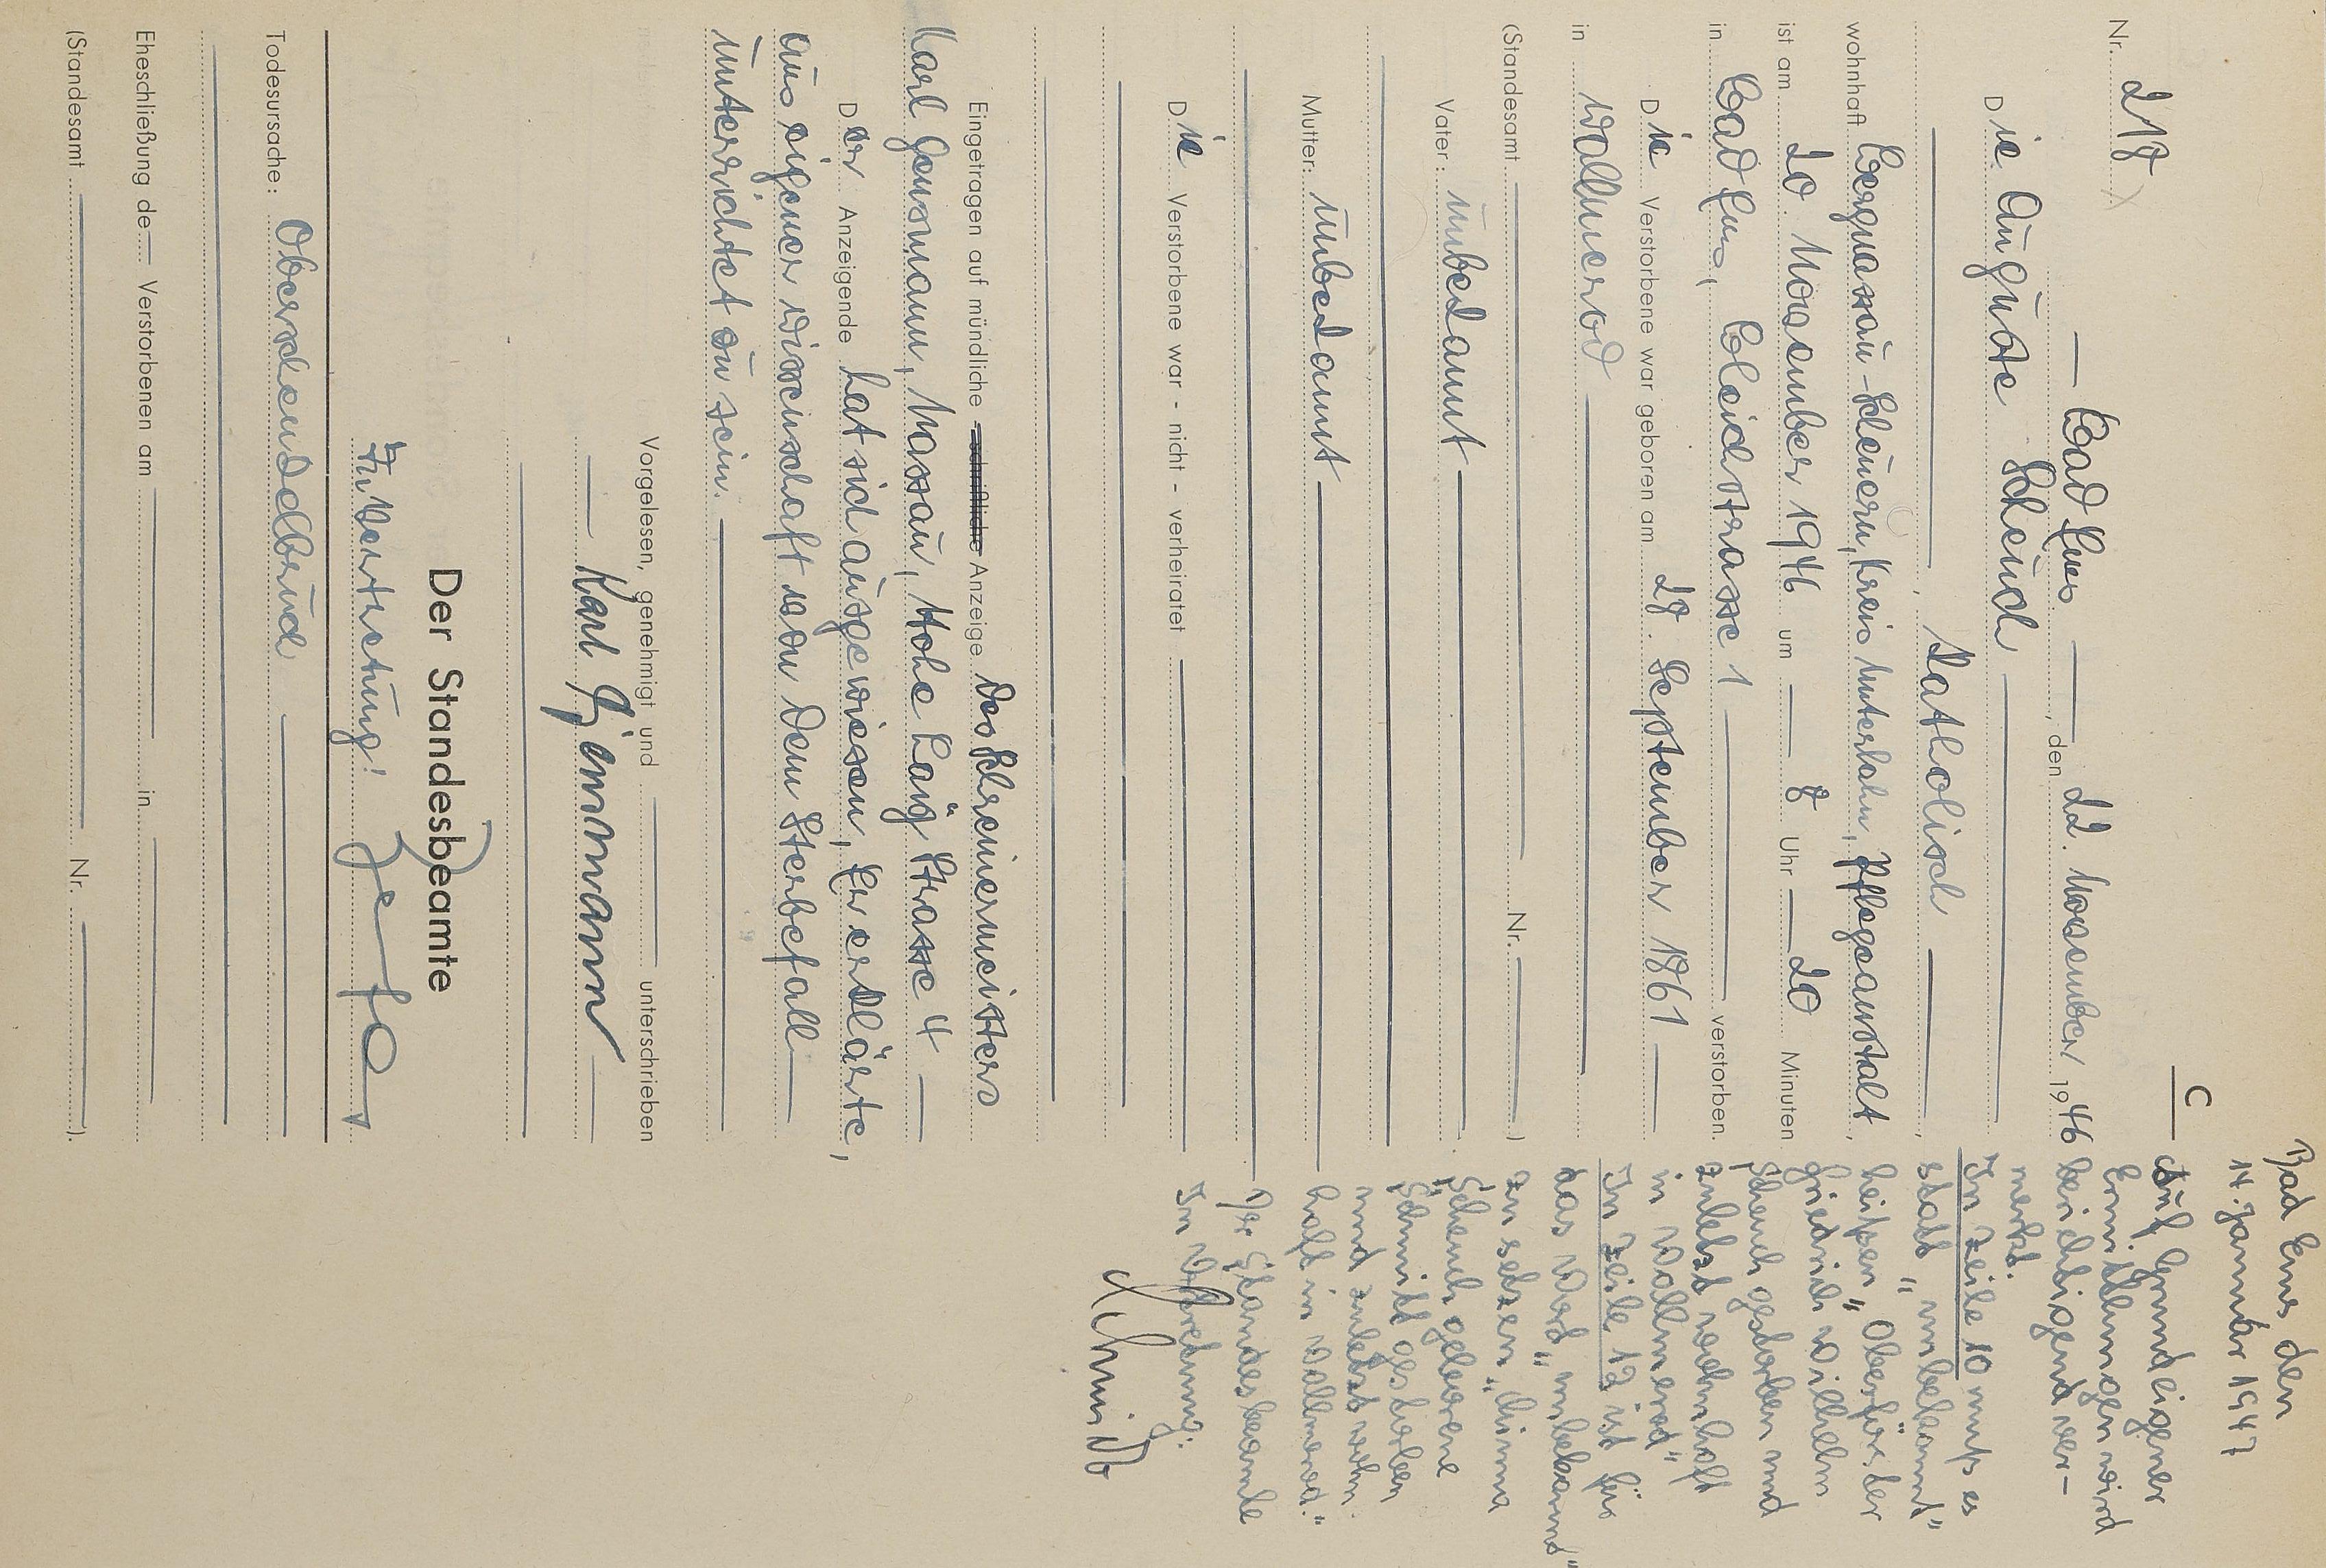 C
Nr. 217
— Bad Ems —, den 22. November 1946
Die Auguste Scheuch —
—, katholisch —,
wohnhaft Bergnassau-Scheuern, Kreis Unterlahn, Pflegeanstalt,
ist am 20. November 1946 um — 8 Uhr — 20 Minuten
in Bad Ems, Bleichstrasse 1 — verstorben.
Die Verstorbene war geboren am 27. September 1861 —
in Wallmerod —
(Standesamt — Nr. —)
Vater: unbekannt —
Mutter: unbekannt —
Die Verstorbene war - nicht - verheiratet —
Eingetragen auf mündliche - schriftliche Anzeige des Schreinermeisters
Karl Gensmann, Nassau, Hohe Laig Strasse 4 —
Der Anzeigende hat sich ausgewiesen, Er erklärte,
aus eigener Wissenschaft von dem Sterbefall —
unterrichtet zu sein. —
Vorgelesen, genehmigt und — unterschrieben
— Karl Gensmann —
Der Standesbeamte
In Vertretung!
Todesursache: Oberschenkelbruch —
Eheschließung de— Verstorbenen am — in —
(Standesamt — Nr. —).
Bad Ems den
14. Januar 1947
Auf Grund eigener
Ermittlungen wird
berichtigend ver-
merkt.
In Zeile 10 muß es
statt „unbekannt"
heißen „Oberförster
Friedrich Wilhelm
Scheuch gestorben und
zuletzt wohnhaft
in Wallmerod"
In Zeile 12 ist für
das Wort „unbekannt"
zu setzen „
Scheuch geborene
Schmitt gestorben
und zuletzt wohn-
haft in Wallmerod."
Der Standesbeamte
In Vertretung:
Schmidt